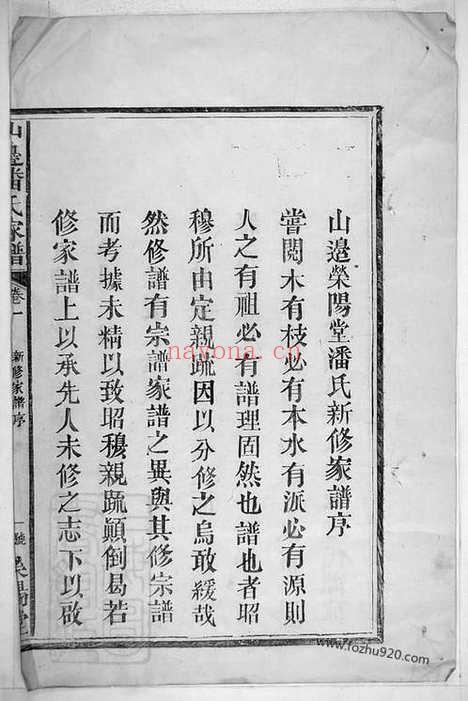 山邉榮陽堂潘氏新修家譜序
嘗閱木有枝必有本水有派必有源則
人之有祖必有譜理固然也譜也者昭
穆所由定親踈因以分修之烏敢緩哉
然修譜有宗譜家譜之異與其修宗譜
而考據未精以致昭穆親踈顛倒曷若
修家譜上以承先人未修之志下以啟
山邉潘氏家譜
卷一
新修家譜序
一
nayona.cn
www.fozhu920.com